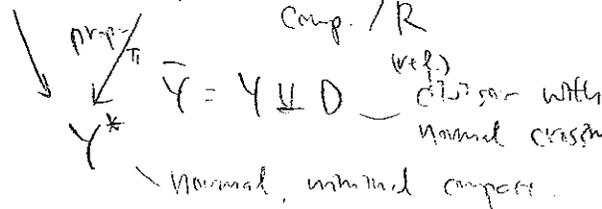 comp. / R
prop. π
Ȳ = Y ⊔ D (ref.) divisor with
Y* normal crossin
normal, minimal compact.